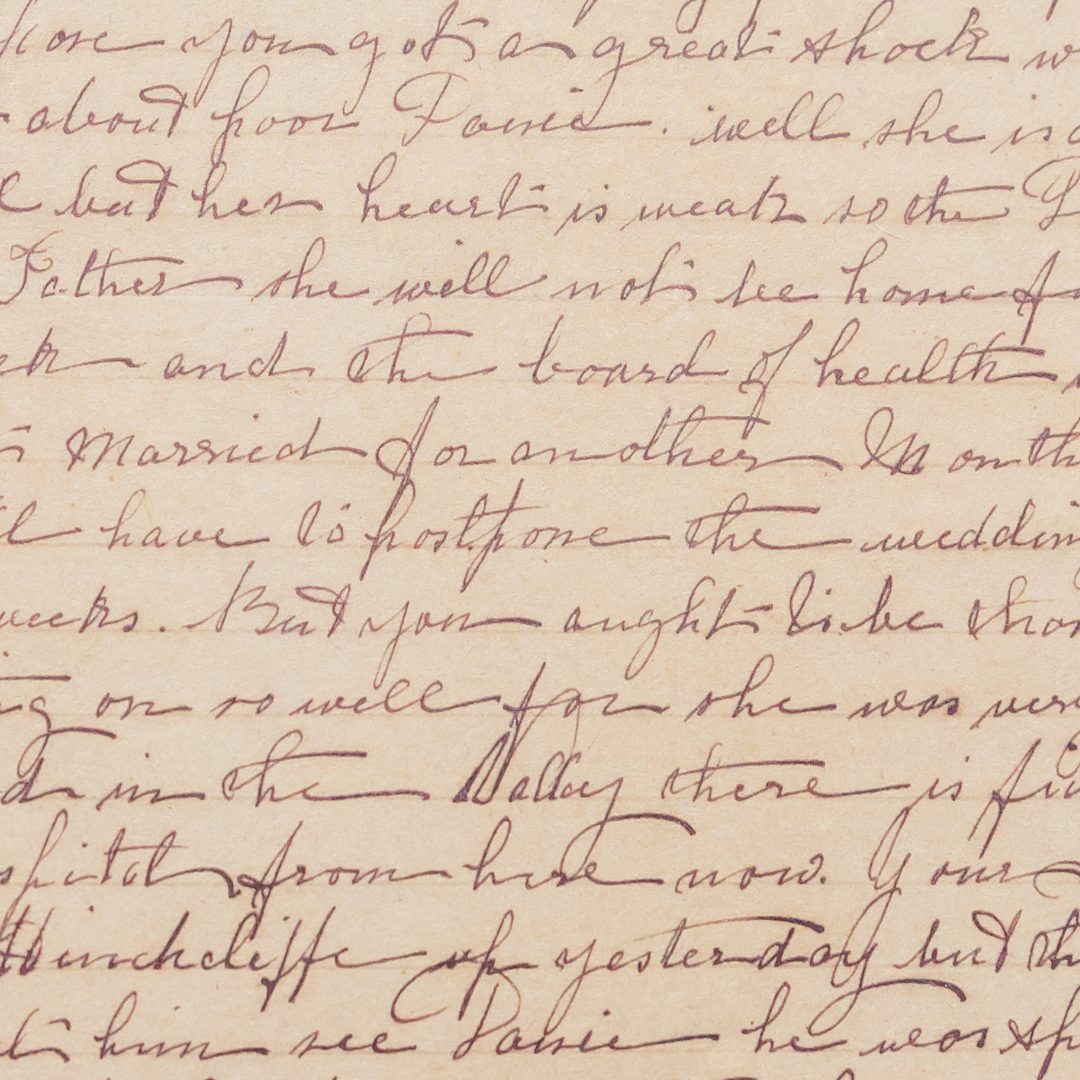 you got a great shock
about poor Fanie. well she is
but her heart is weak so the
Father she will not be home
and the board of health
married for another Month
have to postpone the wedding
weeks. But you aught to be
on so well for she was very
in the Valley there is
from here now. Your
Hinchcliffe up yesterday but
him see Fanie he was